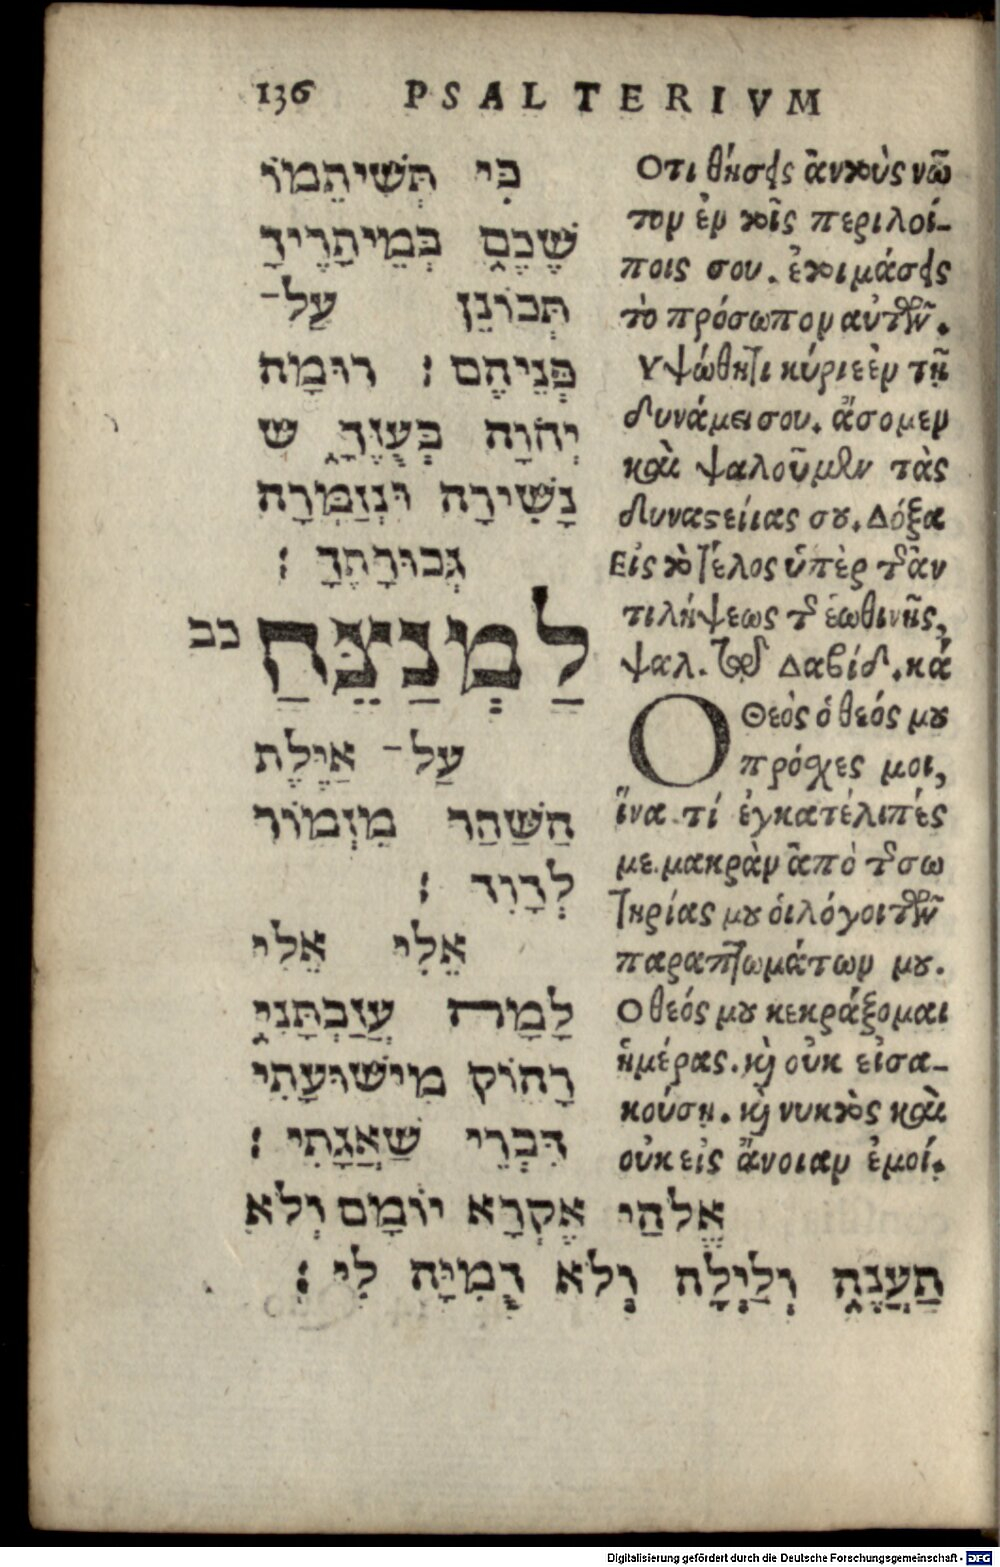 136 PSALTERIVM
כִּי תְּשִׁיתֵמוֹ
שֶׁכֶם בְּמֵיתָרֶיךָ
תְּכוֹנֵן עַל־
פְּנֵיהֶם׃ רוּמָה
יְהֹוָה בְּעֻזֶּךָ ש
נָשִׁירָה וּנְזַמְּרָה
גְּבוּרָתֶךָ׃
כב לַמְנַצֵּחַ
עַל־ אַיֶּלֶת
הַשַּׁחַר מִזְמוֹר
לְדָוִד׃
אֵלִי אֵלִי
לָמָה עֲזַבְתָּנִי
רָחוֹק מִישׁוּעָתִי
דִּבְרֵי שַׁאֲגָתִי׃
אֱלֹהַי אֶקְרָא יוֹמָם וְלֹא
תַעֲנֶה וְלַיְלָה וְלֹא דֻמִיָּה לִי׃
Οτι θήσεις ἀυτοὺς νῶ
τον ἐν τοῖς περιλοί-
ποις σου. ἑτοιμάσεις
τὸ πρόσωπον αὐτῶν.
Υψώθητι κύριε ἐν τῇ
δυνάμει σου. ἄσομεν
καὶ ψαλοῦμεν τὰς
δυναστείας σου. Δόξα
Εἰς τὸ τέλος ὑπὲρ τῆς ἀν
τιλήψεως τῆς ἑωθινῆς,
ψαλ. τῷ Δαβίδ. κά
Ο Θεὸς ὁ θεός μου
πρόσχες μοι,
ἵνα τί ἐγκατέλιπές
με. μακρὰν ἀπὸ τῆς σω
τηρίας μου οἱ λόγοι τῶν
παραπτωμάτων μου.
Ο θεός μου κεκράξομαι
ἡμέρας. καὶ οὐκ εἰσα-
κούσῃ. καὶ νυκτὸς καὶ
οὐκ εἰς ἄνοιαν ἐμοί.
Digitalisierung gefördert durch die Deutsche Forschungsgemeinschaft - DFG